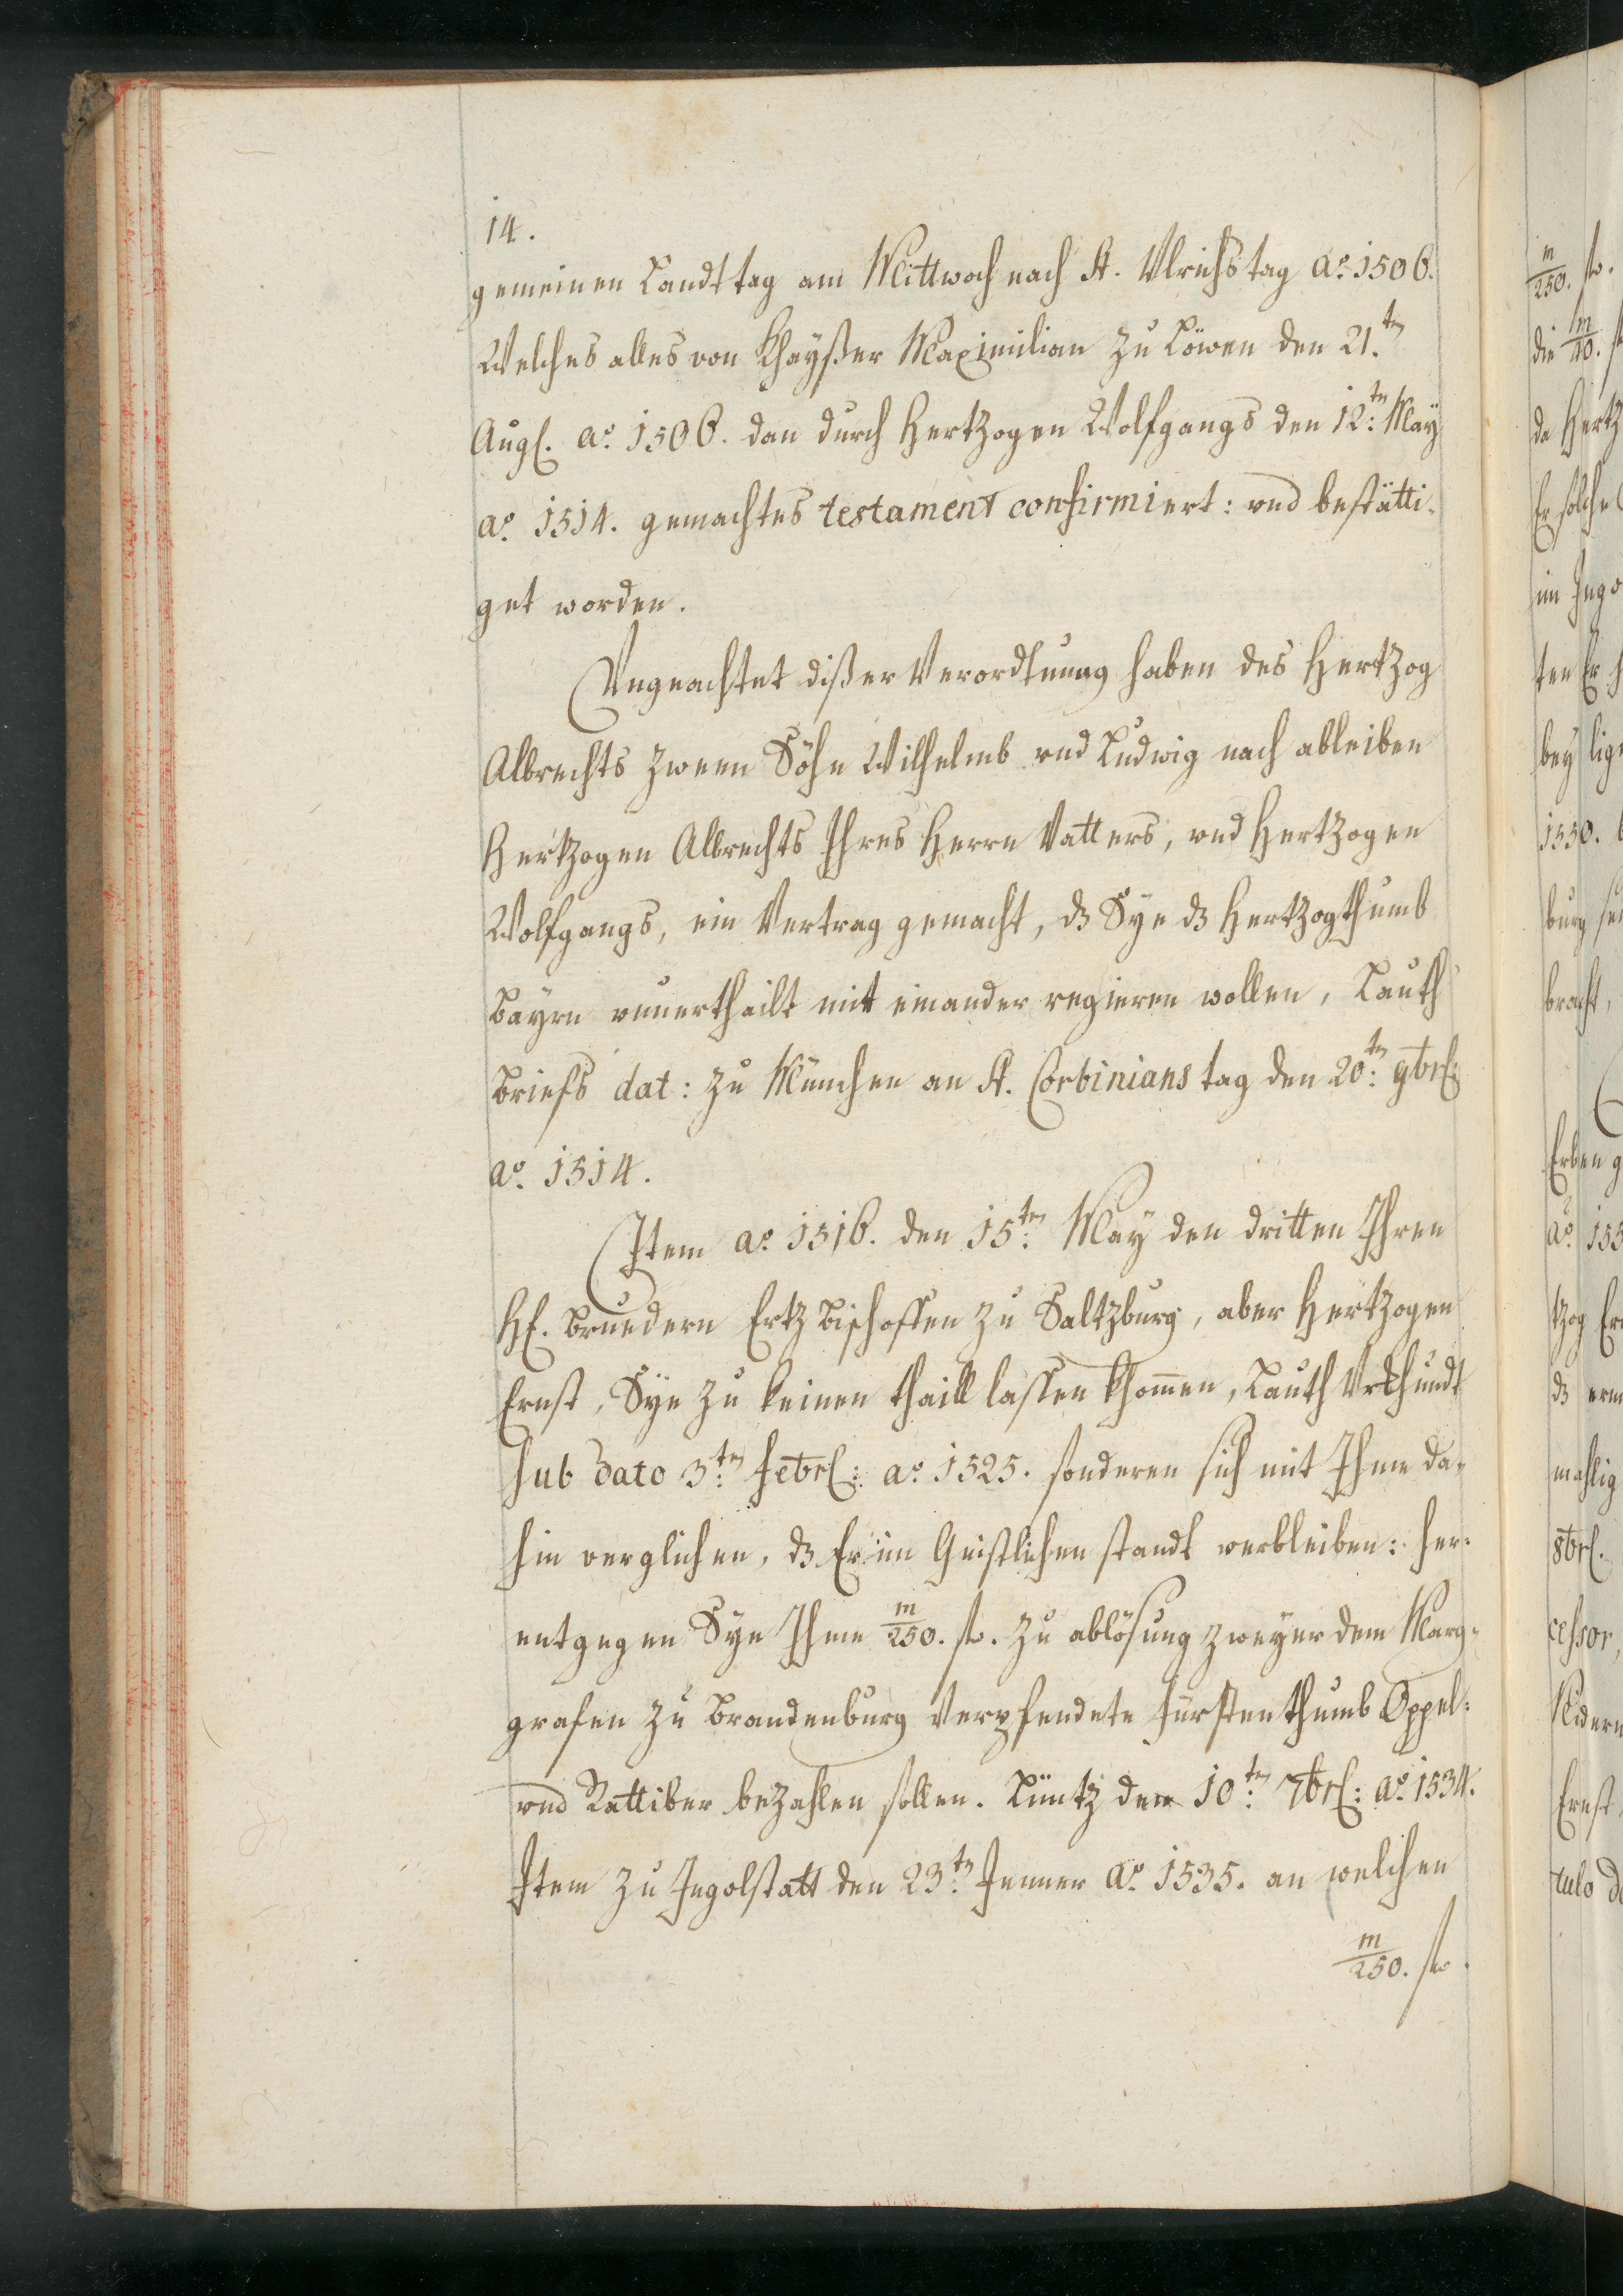 14.
gemeinen Landt tag am Mittwoch nach St. Vlrichs tag aº. 1506.
Welches alles von Khayßer Maximilian zu Löwen den 21.tn
Aug. aº. 1506. dan durch Hertzogen Wolfgangs den 12.tn May
aº. 1514. gemachtes testament confirmiert: vnd bestätti-
get worden.
Vngeachtet dißer Verordtnung haben des Hertzog
Albrechts zween Söhn Wilhelmb vnd Ludwig nach ableiben
Hertzogen Albrechts Ihres Herrn Vatters, vnd Hertzogen
Wolfgangs, ein Vertrag gemacht, dz Sye dz Hertzogthumb
Bayrn vnuerthailt mit einander regieren wollen, Lauth
briefs dat: zu München an St. Corbinians tag den 20.tn 9br:
aº. 1514.
Item aº. 1516. den 15.tn May den dritten Ihren
H. bruedern Ertz Bischoffen zu Saltzburg, aber Hertzogen
Ernst, Sye zu keinen thaill lassen khom̄en, Lauth Vrkhundt
sub dato 3.tn Febr: aº. 1525. sonderen sich mit Ihme da-
hin verglichen, dz Er im Geistlichen standt verbleiben: her-
entgegen Sye Ihme m/250. fl. zu ablösung zweyer dem Marg-
grafen zu Brandenburg Verpfendete Fürstenthumb Oppel-
vnd Rattiber bezahlen sollen. Lüntz den 10.tn 7br: aº. 1534.
Item zu Ingolstatt den 23.tn Jenner aº. 1535. an welchen
m/250. fl.
m/250. fl.
die m/40.
da Hertz
Er solche
im Ingo
ten Er
bey lig
1550.
burg
bracht,
Erben
aº. 155
tzog
dz
mahlig
8br.
cessor,
Ernst
tulo